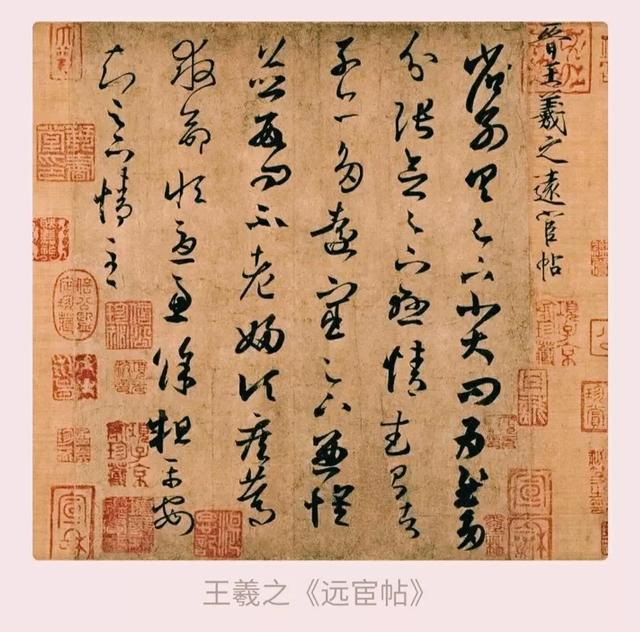 晉王羲之遠宦帖
省別具足下小大問為慰多
分張念足下懸情武昌諸
子亦多遠宦足下兼懷
並數問不老婦頃疾篤
救命恒憂慮餘粗平安
知足下情至
王羲之《远宦帖》